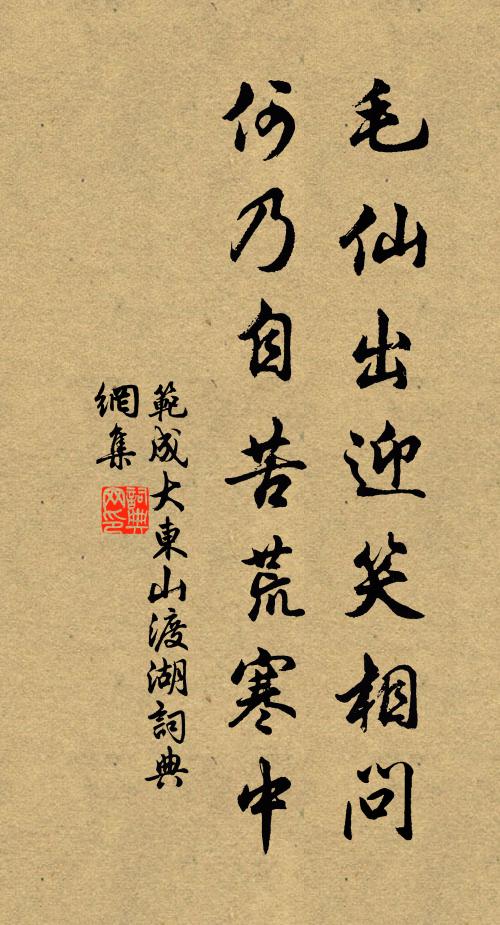 毛仙出迎笑相問
何乃自苦荒寒中
範成大東山渡湖詞典
網集
詞典
网印